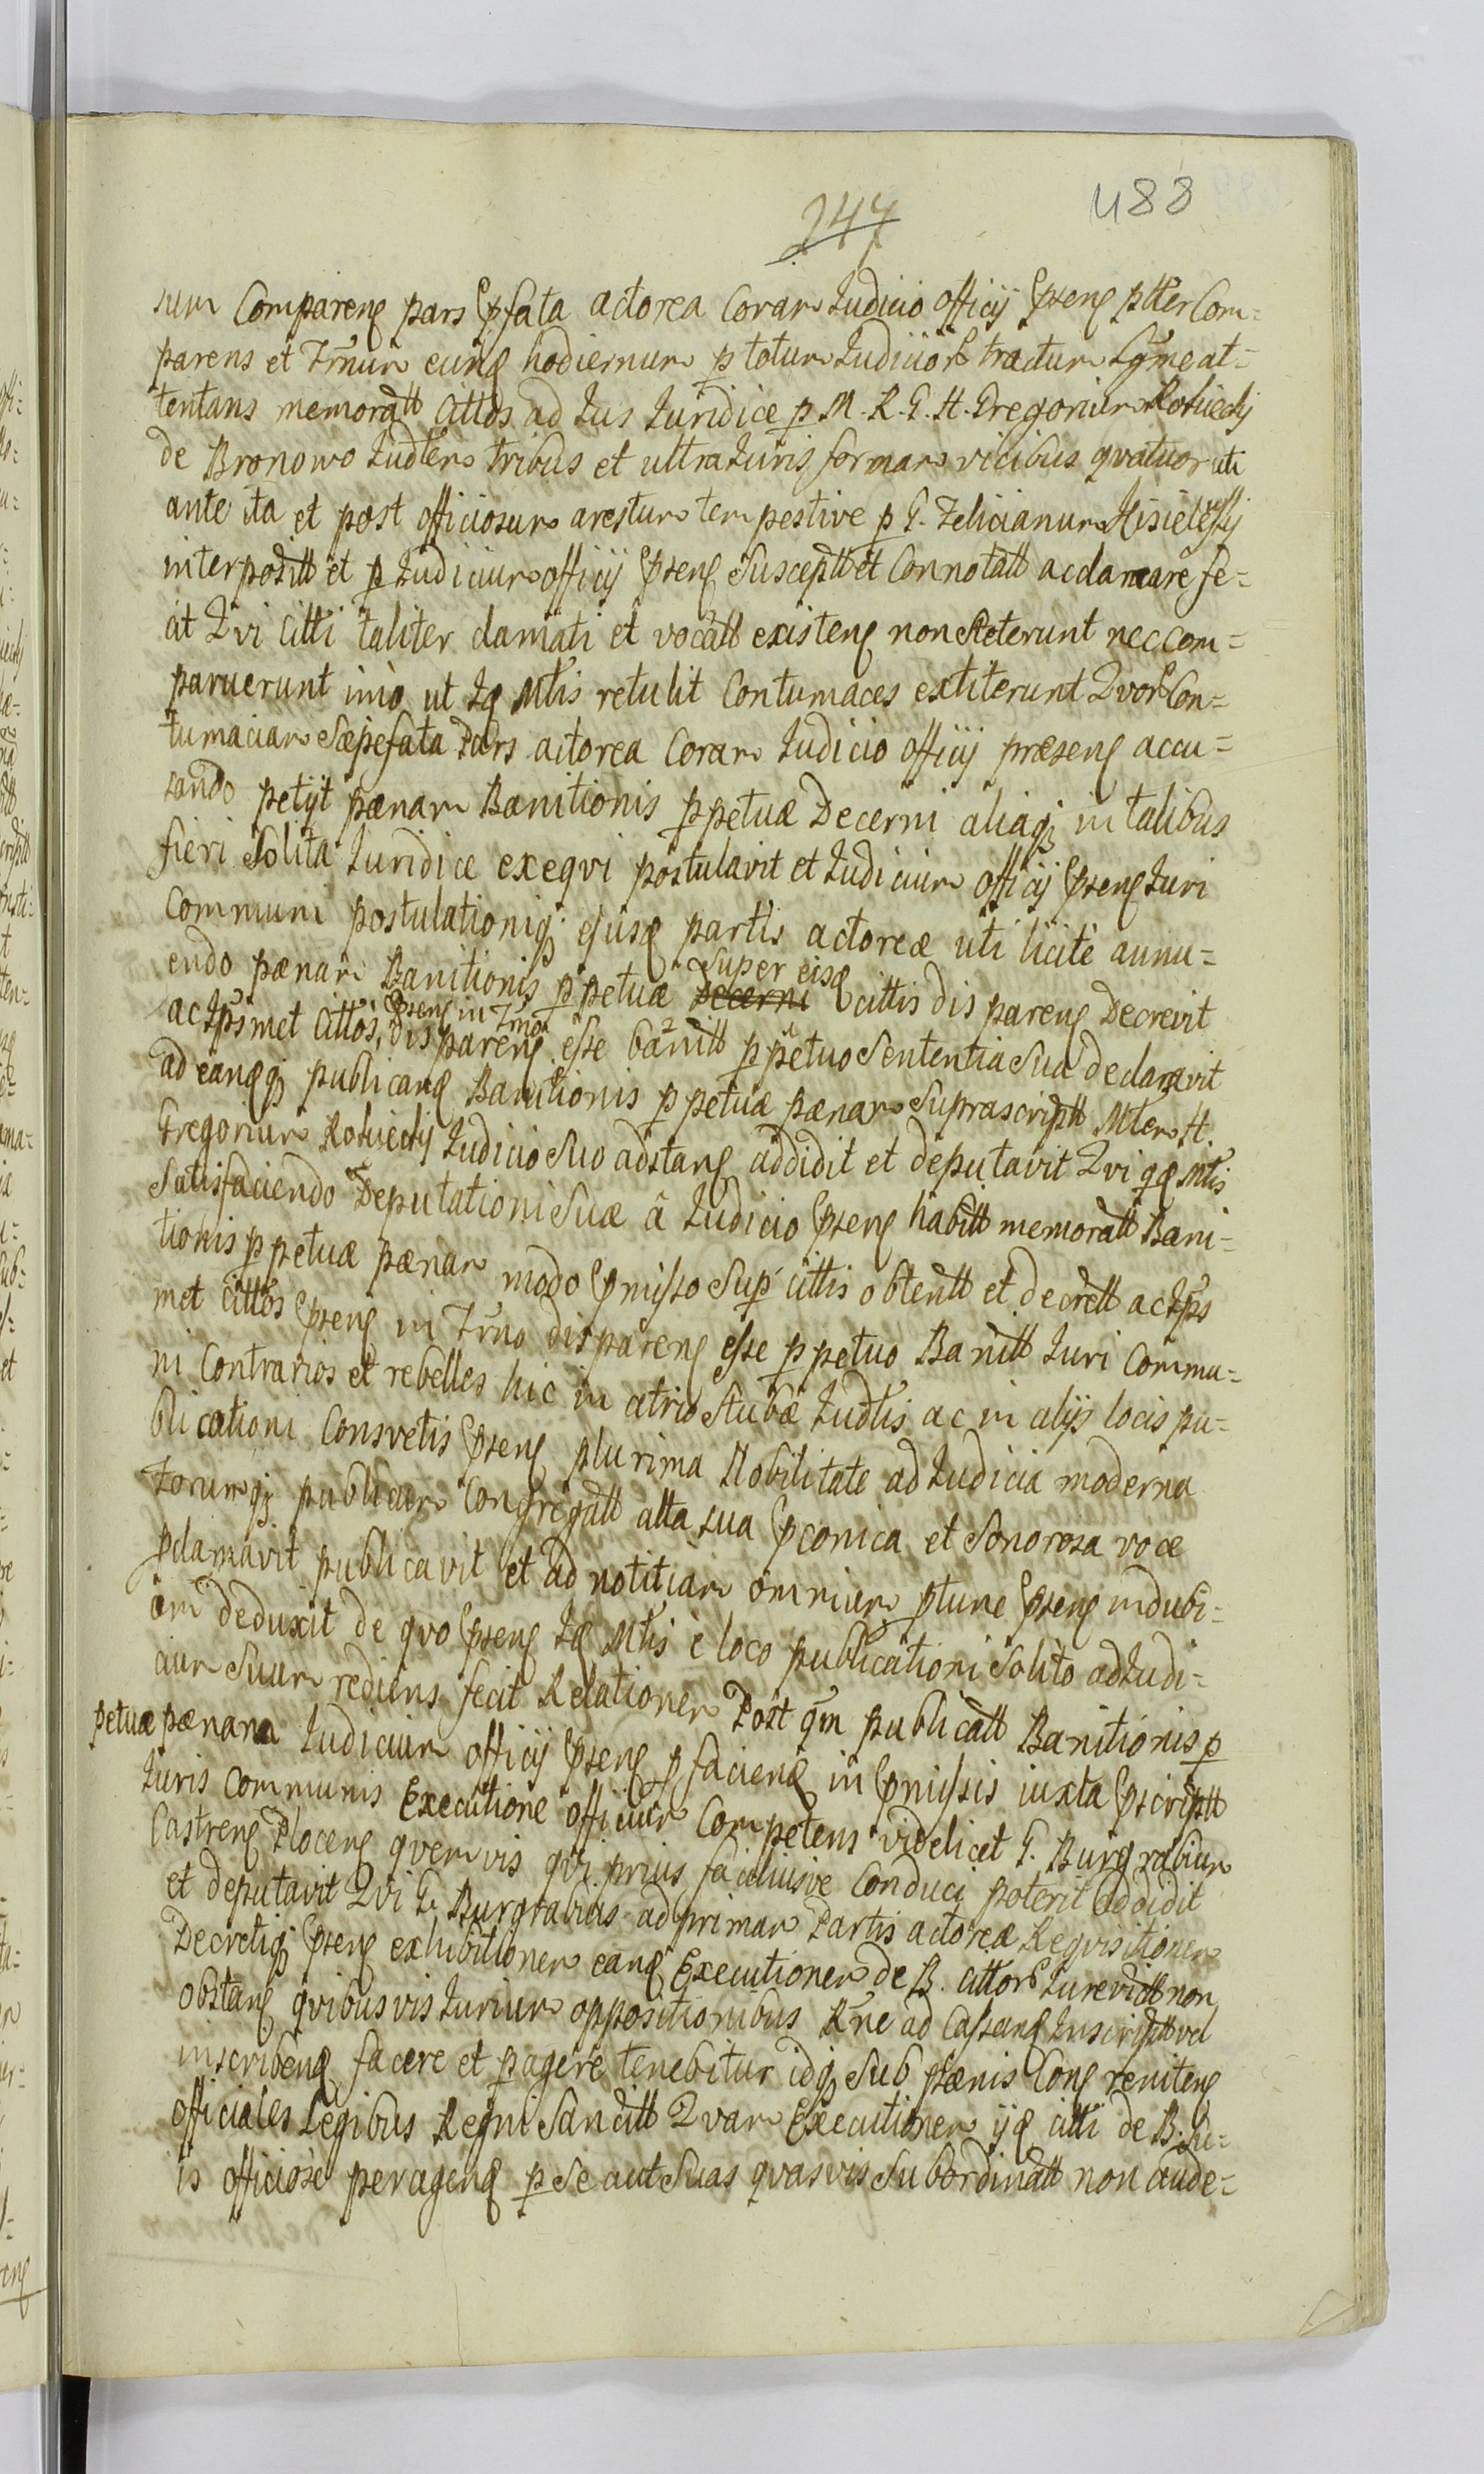 488
247
sum Comparens pars pfata actorea Coram Judicio officij psens ptter Com=
parens et Trnum eund hodiernum p totum Judicior tractum Lgme at=
tentans memoratt Cittos ad Jus Juridice p M. R. G. H. Gregorium Kotwicky
de Bronowo Judlem tribus et ultra Juris formam vicibus qvatuor uti
ante ita et post officiosum arestum tempestive p G. Felicianum
interpositt et p Judicium officij psens Susceptt et Connotatt acclamare fe=
cit Qvi Citti taliter clamati et vocatt existens non Steterunt nec com=
paruerunt imo ut Id Mtis retulit Contumaces extiterunt Qvor Con=
tumaciam Sæpefata Pars actorea Coram Judicio officij præsens accu=
sando petijt pænam Banitionis ppetuæ Decerni aliaq in talibus
fieri Solita Juridice exeqvi postulavit et Judicium officij psens Juri
Communi postulationiq ejusd partis actoreæ uti licite annu=
endo pænam Banitionis ppetuæ Decerni Super eisd cittis dispareng Decrevit
ac Ipsmet Cittos, psens in Trno dispareng esse banitt ppetuo Sententia Sua declaravit
ad eandq publicand Banitionis ppetuæ pænam Suprascriptt Mtem H.
Gregorium Kotwicky Judicio Suo adstang addidit et deputavit Qvi qd Mtis
Satisfaciendo Deputationi Suæ â Judicio psens habitt memoratt Bani=
tionis ppetuæ pænam modo pmisso Sup cittis obtentt et decrett ac Ips
met Cittos psens in Trno dispareng esse ppetuo Banitt Juri Commu=
ni Contrarios et rebelles hic in atrio Stubæ Judlis ac in alijs locis pu=
blicationi Consvetis psens plurima Nobilitate ad Judicia moderna
Forumq publicum Congregatt alta sua pconica et Sonorosa voce
pclamavit publicavit et ad notitiam omnium ptunc psens indubi=
am deduxit de qvo psens Id Mtis è loco publicationi Solito ad Judi=
cium Suum rediens fecit Relationem Post qm publicatt Banitionis p
petuæ pænam Judicium officij psens p faciend in pmissis iuxta pscriptt
Juris Communis Executione officium Competens videlicet G. Burgrabium
Castreng Ploceng qvemvis qvi prius faciliusve Conduci poterit addidit
et deputavit Qvi G. Burgrabius ad primam Partis actoreæ Reqvisitionem
Decretiq psens exhibitionem eand Executionem de B. cittor Jurevictt non
obstang qvibusvis Jurium oppositionibus Rne ad Cassand Inscriptt vel
inscribend facere et pagere tenebitur idq Sub pænis Cong renitens
officiales Legibus Regni Sancitt Qvam Executionem ijd citti de B. Su=
is officiose peragend p Se aut Suas qvasvis Subordinatt non aude=